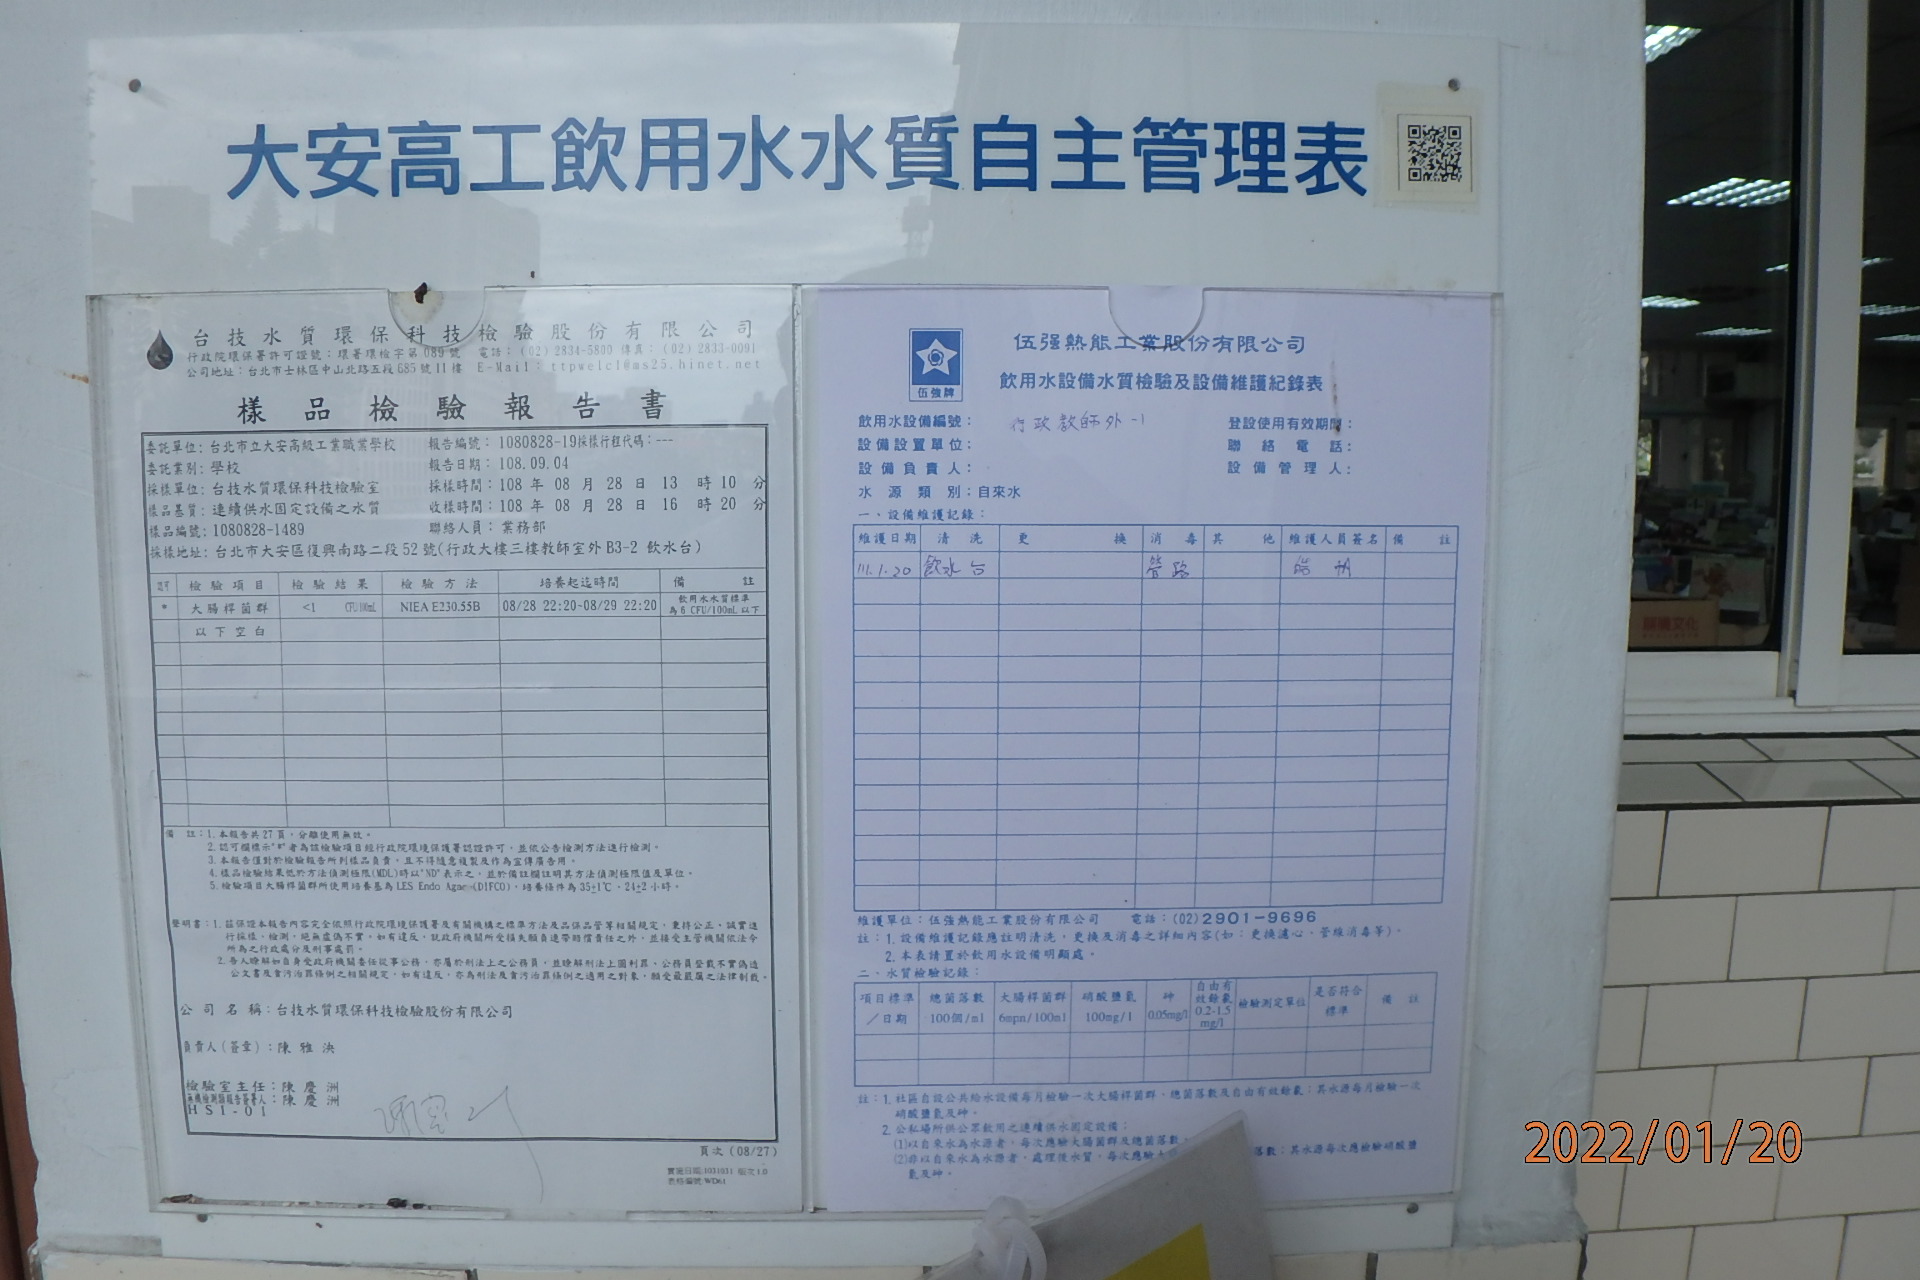 大安高工飲用水水質自主管理表
台技水質環保科技檢驗股份有限公司
行政院環保署許可證號：環署環檢字第089號 電話：(02) 2834-5800 傳真：(02) 2833-0091
公司地址：台北市士林區中山北路五段685號11樓 E-Mail：ttpwelcl@ms25.hinet.net
樣品檢驗報告書
委託單位：台北市立大安高級工業職業學校 報告編號：1080828-19採樣行程代碼：---
委託業別：學校 報告日期：108.09.04
採樣單位：台技水質環保科技檢驗室 採樣時間：108 年 08 月 28 日 13 時 10 分
樣品基質：連續供水固定設備之水質 收樣時間：108 年 08 月 28 日 16 時 20 分
樣品編號：1080828-1489 聯絡人員：業務部
採樣地址：台北市大安區復興南路二段52號(行政大樓三樓教師室外B3-2 飲水台)
認可 檢驗項目 檢驗結果 檢驗方法 培養起迄時間 備註
* 大腸桿菌群 <1 CFU/100mL NIEA E230.55B 08/28 22:20-08/29 22:20 飲用水水質標準為6 CFU/100mL以下
以下空白
備 註：1.本報告共27頁，分離使用無效。
2.認可欄標示"*"者為該檢驗項目經行政院環境保護署認證許可，並依公告檢測方法進行檢測。
3.本報告僅對於檢驗報告所列樣品負責，且不得隨意複製及作為宣傳廣告用。
4.樣品檢驗結果低於方法偵測極限(MDL)時以"ND"表示之，並於備註欄註明其方法偵測極限值及單位。
5.檢驗項目大腸桿菌群所使用培養基為LES Endo Agar(DIFCO)，培養條件為35±1℃，24±2小時。
聲明書：1.茲保證本報告內容完全依照行政院環境保護署及有關機構之標準方法及品保品管等相關規定，秉持公正、誠實進
行採樣、檢測，絕無虛偽不實，如有違反，就政府機關所受損失願負連帶賠償責任之外，並接受主管機關依法令
所為之行政處分及刑事處罰。
2.吾人瞭解如自身受政府機關委任從事公務，亦屬於刑法上之公務員，並瞭解刑法上圖利罪、公務員登載不實偽造
公文書及貪污治罪條例之相關規定，如有違反，亦為刑法及貪污治罪條例之適用之對象，願受最嚴厲之法律制裁。
公司名稱：台技水質環保科技檢驗股份有限公司
負責人(簽章)：陳雅泱
檢驗室主任：陳慶洲
無機檢測類報告簽署人：陳慶洲
HSI-01
頁次 (08/27)
實施日期:1031031 版次1.0
表格編號:WD61
伍強牌
伍強熱能工業股份有限公司
飲用水設備水質檢驗及設備維護紀錄表
飲用水設備編號：行政教師外-1 登設使用有效期間：
設備設置單位： 聯絡電話：
設備負責人： 設備管理人：
水源類別：自來水
一、設備維護記錄：
維護日期 清洗 更換 消毒 其他 維護人員簽名 備註
111.1.20 飲水台 管路
維護單位：伍強熱能工業股份有限公司 電話：(02)2901-9696
註：1.設備維護記錄應註明清洗、更換及消毒之詳細內容(如：更換濾心、管線消毒等)。
2.本表請置於飲用水設備明顯處。
二、水質檢驗記錄：
項目標準／日期 總菌落數100個/ml 大腸桿菌群6mpn/100ml 硝酸鹽氮100mg/l 砷0.05mg/l 自由有效餘氯0.2-1.5mg/l 檢驗測定單位 是否符合標準 備註
註：1.社區自設公共給水設備每月檢驗一次大腸桿菌群、總菌落數及自由有效餘氯；其水源每月檢驗一次
硝酸鹽氮及砷。
2.公私場所供公眾飲用之連續供水固定設備：
(1)以自來水為水源者，每次應驗大腸菌群及總菌落數
(2)非以自來水為水源者，處理後水質，每次應驗大 落數；其水源每次應檢驗硝酸鹽
氮及砷。
2022/01/20